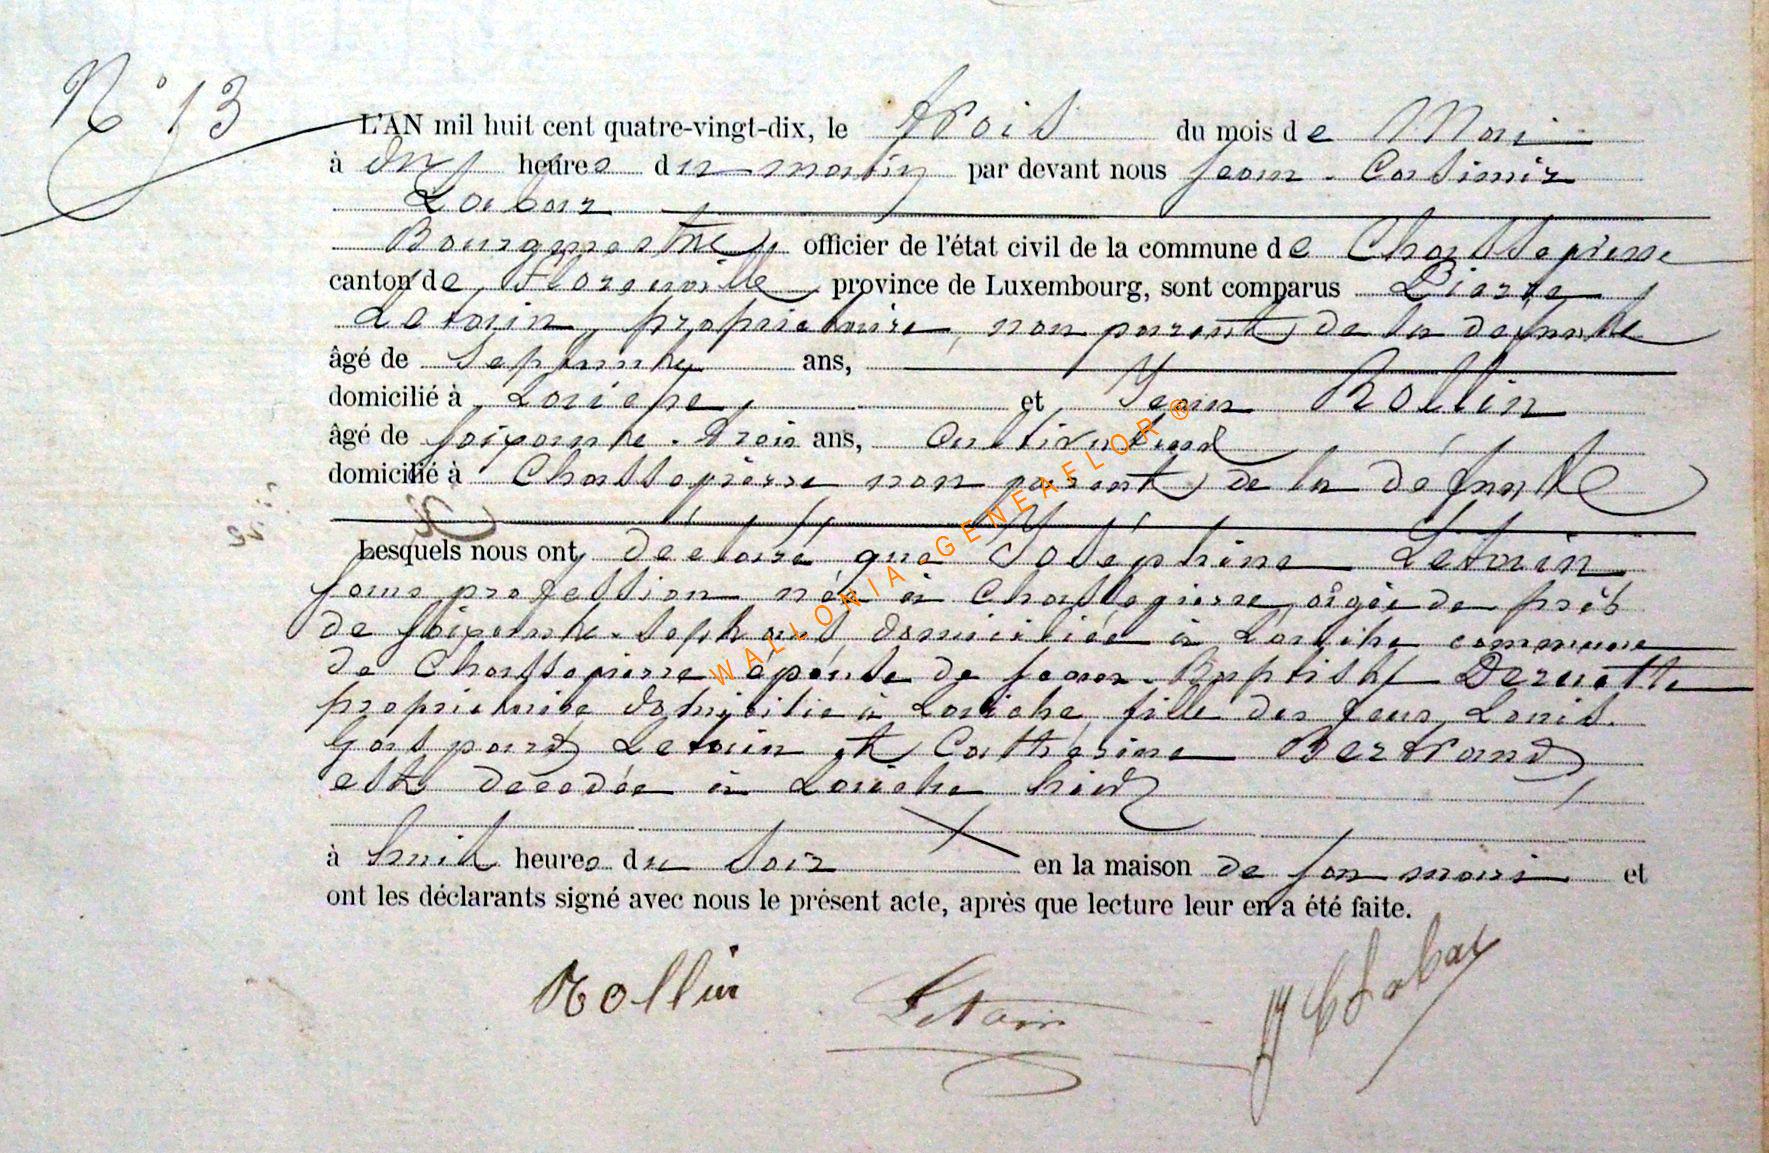 N° 13
L'AN mil huit cent quatre-vingt-dix, le trois du mois de Mai
à dix heures du matin par devant nous Jean-Casimir
Labar
Bourgmestre officier de l'état civil de la commune de Chassepierre
canton de Florenville province de Luxembourg, sont comparus Pierre
Letain, propriétaire, non parent de la défunte
âgé de septante ans,
domicilié à Laiche, et Jean Rollin
âgé de soixante-trois ans, Cultivateur
domicilié à Chassepierre non parent de la défunte
Lesquels nous ont déclaré que Joséphine Letain
sans profession née à Chassepierre, âgée de près
de soixante-sept ans, domiciliée à Laiche commune
de Chassepierre épouse de Jean-Baptiste Deruette
propriétaire domicilié à Laiche, fille des feus Louis
Gaspard Letain et Cathérine Bertrand
est décédée à Laiche hier
à huit heures du soir en la maison de son mari et
ont les déclarants signé avec nous le présent acte, après que lecture leur en a été faite.
Rollin Letain JC Labar
WALLONIA GENEAFLOR ®